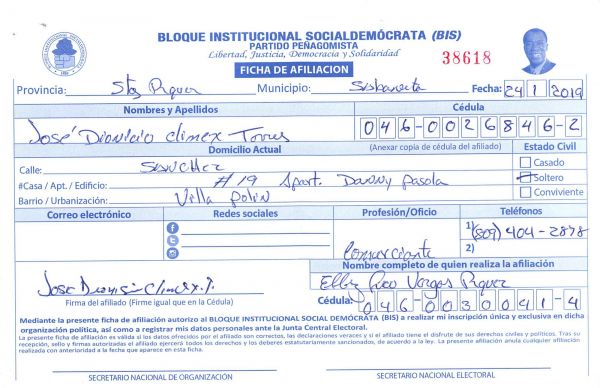 BLOQUE INSTITUCIONAL SOCIALDEMÓCRATA (BIS)
PARTIDO PEÑAGOMISTA
Libertad, Justicia, Democracia y Solidaridad
38618
FICHA DE AFILIACION
Provincia: Stgo Rguez Municipio: Sabaneta Fecha: 24 1 2019
Nombres y Apellidos Cédula
José Dionicio Climex Torres 046-0026846-2
Domicilio Actual (Anexar copia de cédula del afiliado) Estado Civil
Calle: SANCHEZ Casado
#Casa / Apt. / Edificio: #19 Apart. Danny Pasola Soltero
Barrio / Urbanización: Villa Polin Conviviente
Correo electrónico Redes sociales Profesión/Oficio Teléfonos
1) (809) 404-2878
2)
Comerciante
Nombre completo de quien realiza la afiliación
José Dionisio Climex T. Vargas Rguez
Firma del afiliado (Firme igual que en la Cédula) Cédula: 046-0030041-4
Mediante la presente ficha de afiliación autorizo al BLOQUE INSTITUCIONAL SOCIAL DEMÓCRATA (BIS) a realizar mi inscripción única y exclusiva en dicha
organización política, así como a registrar mis datos personales ante la Junta Central Electoral.
La presente ficha de afiliación es válida a los datos ofrecidos por el afiliado son correctos, las declaraciones veraces y si el afiliado tiene el disfrute de sus derechos civiles y políticos. Tras su
recepción, sello y firmas autorizadas el afiliado ejercerá todos los derechos y los deberes estatutariamente sancionados, de acuerdo a la ley. La presente afiliación anula cualquier afiliación
realizada con anterioridad a la fecha que aparece en esta ficha.
SECRETARIO NACIONAL DE ORGANIZACIÓN SECRETARIO NACIONAL ELECTORAL